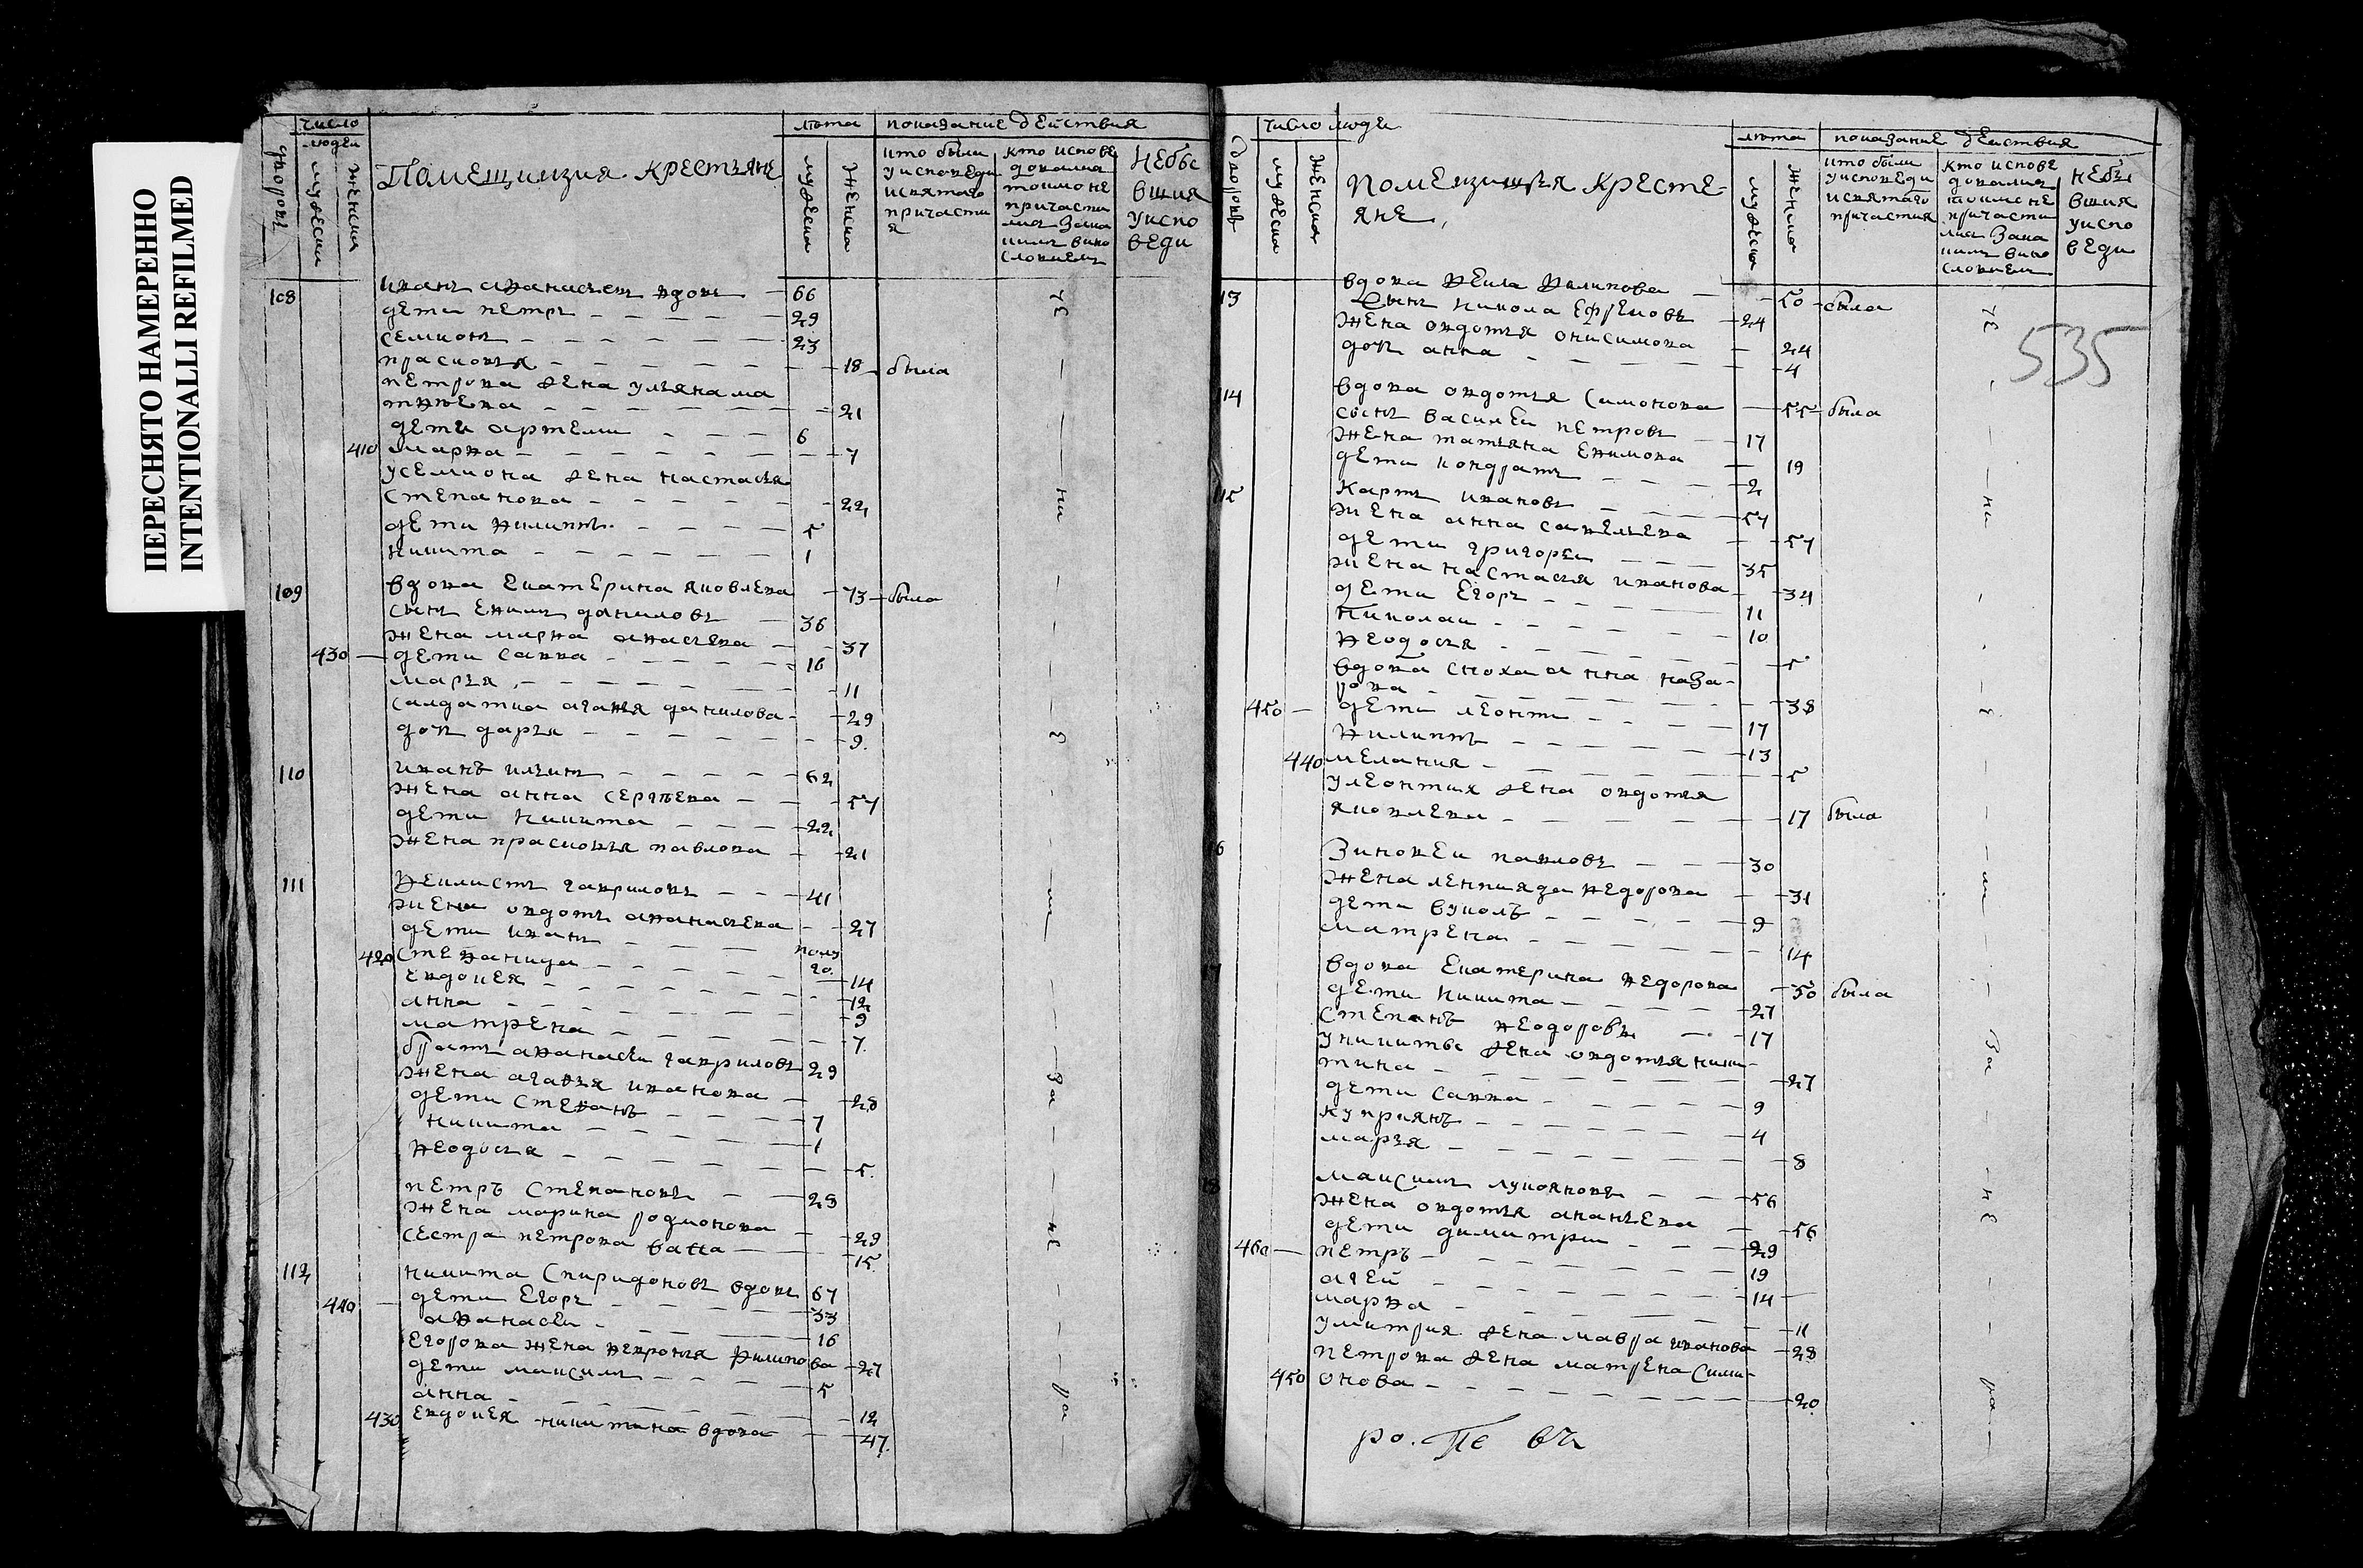 ПЕРЕСНЯТО НАМЕРЕННО
INTENTIONALLI REFILMED
число людеи
лѣта
показание действия
дворовъ
мужеска
женска
Помещицкия крестьяне
мужеска
женска
кто были у исповеди и святаго причастия
кто испове довался токмо не причасти лся за каким винословием
Небывшия у испо веди
108 иван афанасьевъ вдовъ — 66
дети петръ — 29
семионъ — 23
прасковья — 18 была
петрова жена ульяна ма
твѣева — 21
дети артеми — 6
410 марфа — 7
у семиона жена настасья
степанова — 22
дети филиппъ — 5
никита — 1
109 вдова екатерина яковлева — 73 была
сынъ ефимъ даниловъ — 36
жена марфа афанасьева — 37
430 — дети савва — 16
марья — 11
салдатка агафья данилова — 29
дочь дарья — 9
110 иванъ ильинъ — 62
жена анна сергѣева — 57
дети никита — 22
жена прасковья павлова — 21
111 феилистъ гавриловъ — 41
жена овдотья афанасьева — 27
дети иванъ — полу го.
420 стефанида — 14
евдокея — 12
анна — 9
матрена — 7
братъ афанасеи гавриловъ 29
жена агафья иванова — 28
дети стефанъ — 7
никита — 1
феодосья — 5
петръ степановъ — 28
жена марина родионова — 29
сестра петрова васса — 15
112 никита спиридоновъ вдовъ 67
440 — дети егоръ — 33
афанасеи — 16
егорова жена февронья филипова — 27
дети максимъ — 5
анна — 12
430 евдокея никитина вдова — 47
не — на — з — ли — за — не — ра —
число людеи
лѣта
показание действия
дворовъ
мужеска
женска
помещицкия кресте-
яне
мужеска
женска
кто были у исповеди и святаго причастия
кто испове довался токмо не причасти лся за каким винословием
небывшия у испо веди
535
13 вдова фекла филипова — 50 была
сынъ никола ефремовъ — 24
жена овдотья онисимова — 24
дочь анна — 4
14 вдова овдотья симонова — 55 была
сынъ василеи петровъ — 17
жена татьяна ефимова — 19
дети кондратъ — 2
15 карпъ ивановъ — 57
жена анна савельева — 57
дети григореи — 35
жена настасья иванова — 34
дети егоръ — 11
николаи — 10
феодосья — 5
вдова сноха анна наза-
рова — 38
450 — дети леонти — 17
филиппъ — 13
440 мелания — 5
у леонтия жена овдотья
яковлева — 17 была
16 зиновеи павловъ — 30
жена федорова — 31
дети вуколъ — 9
матрена — 14
17 вдова екатерина федорова — 50 была
дети никита — 27
степанъ феодоровы — 17
у никиты жена овдотья ники-
тина — 27
дети савва — 9
куприянъ — 4
марья — 8
18 максимъ лукояновъ — 56
жена овдотья ананьева — 56
дети димитри — 29
460 — петръ — 19
агей — 14
марфа — 11
у митрия жена мавра иванова — 28
петрова жена матрена сими-
450 онова — 20